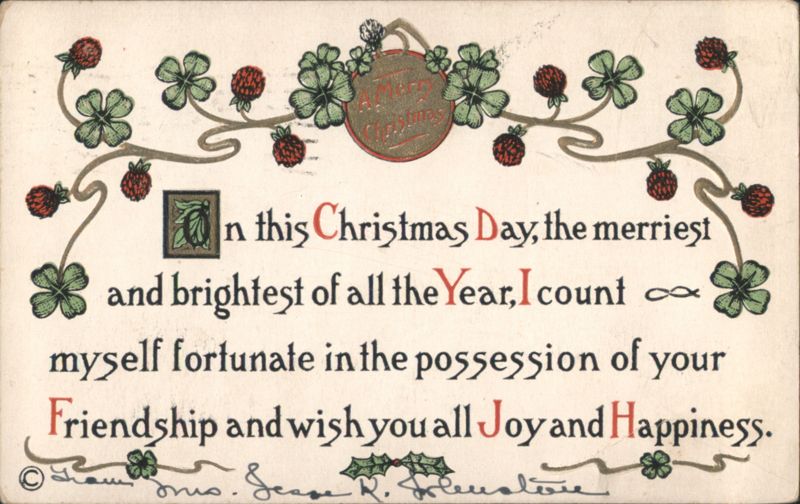 A Merry
Christmas
On this Christmas Day, the merriest
and brightest of all the Year, I count
myself fortunate in the possession of your
Friendship and wish you all Joy and Happiness.
© From Mrs. Jesse R. Johnston